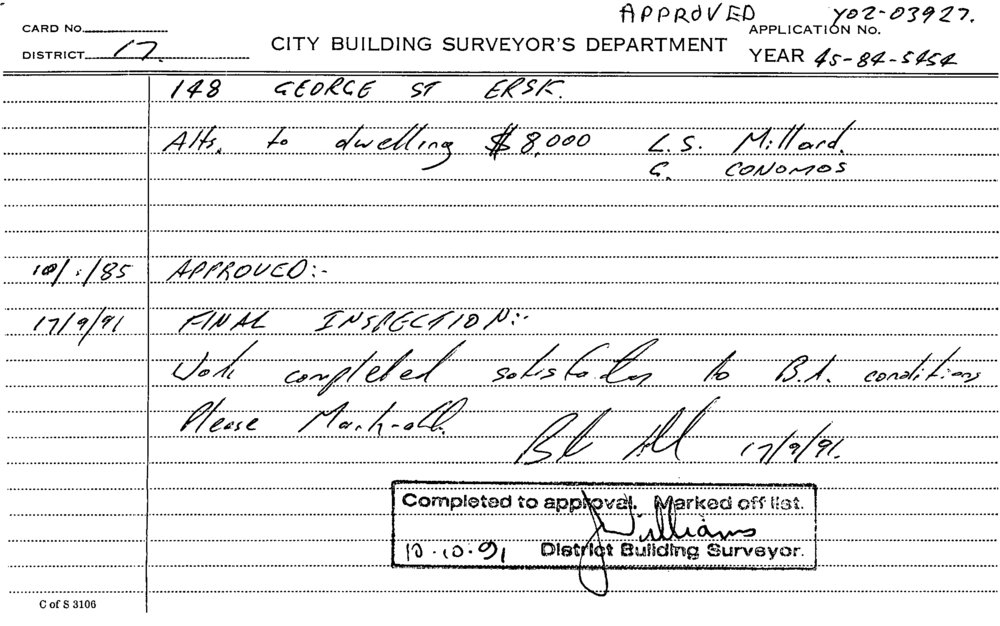 APPROVED Y02-03927.
CARD No.
APPLICATION No.
DISTRICT 17. CITY BUILDING SURVEYOR'S DEPARTMENT YEAR 45-84-5454
148 GEORGE ST ERSK.
Alts. to dwelling $8,000 L.S. Millard.
G. CONOMOS
/85 APPROVED:-
17/9/91 FINAL INSPECTION:-
Work completed satisfactory to B.A. conditions
Please Mark-off.
17/9/91.
Completed to approval. Marked off list.
Williams
10.10.91 District Building Surveyor.
C of S 3106